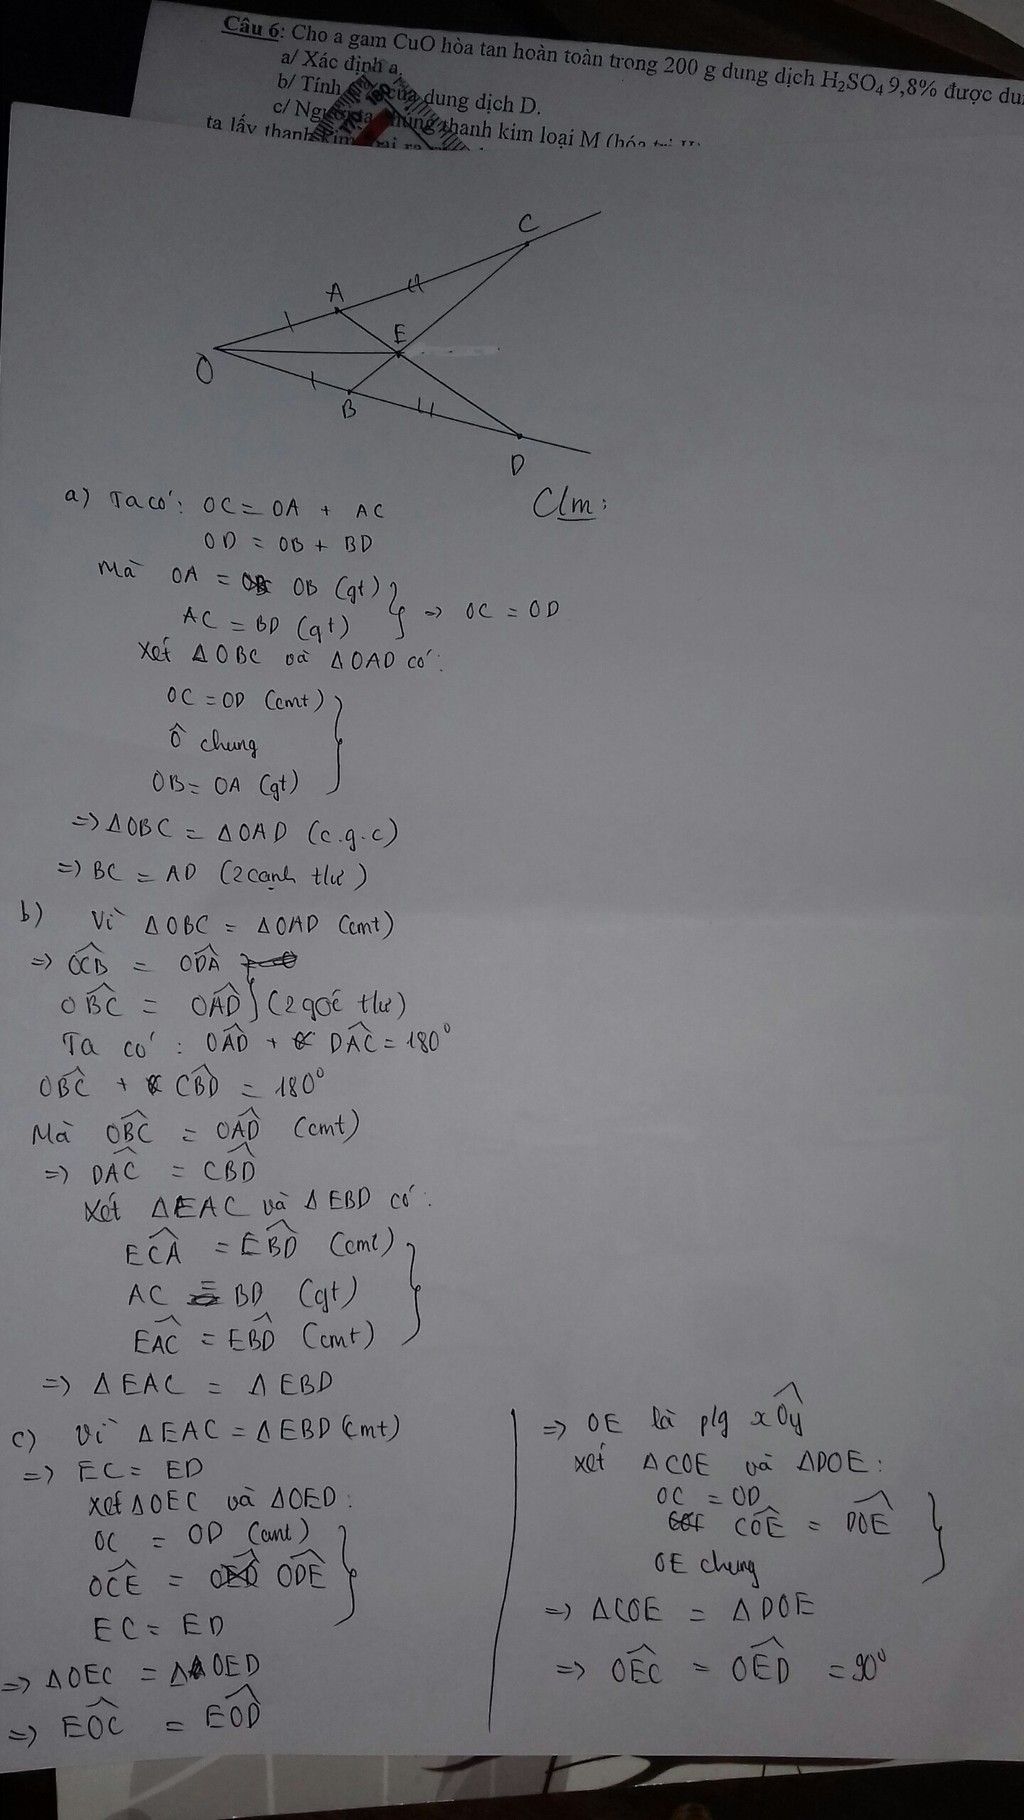 Câu 6: Cho a gam CuO hòa tan hoàn toàn trong 200 g dung dịch H₂SO₄ 9,8% được
a/ Xác định a.
b/ Tính dung dịch D.
c/ thanh kim loại M
ta lấy thanh
C
A
E
O
B
D
C/m:
a) Ta có: OC = OA + AC
OD = OB + BD
Mà OA = OB (gt)
AC = BD (gt) } => OC = OD
Xét ΔOBC và ΔOAD có:
OC = OD (cmt)
Ô chung
OB = OA (gt)
=> ΔOBC = ΔOAD (c.g.c)
=> BC = AD (2 cạnh tlư)
b) Vì ΔOBC = ΔOAD (cmt)
=> OCB = ODA
OBC = OAD } (2 góc tlư)
Ta có: OAD + DAC = 180°
OBC + CBD = 180°
Mà OBC = OAD (cmt)
=> DAC = CBD
Xét ΔEAC và ΔEBD có:
ECA = EBD (cmt)
AC = BD (gt)
EAC = EBD (cmt)
=> ΔEAC = ΔEBD
c) Vì ΔEAC = ΔEBD (cmt)
=> EC = ED
Xét ΔOEC và ΔOED:
OC = OD (cmt)
OCE = ODE
EC = ED
=> ΔOEC = ΔOED
=> EOC = EOD
=> OE là p/g xOy
Xét ΔCOE và ΔDOE:
OC = OD
COE = DOE
OE chung
=> ΔCOE = ΔDOE
=> OEC = OED = 90°